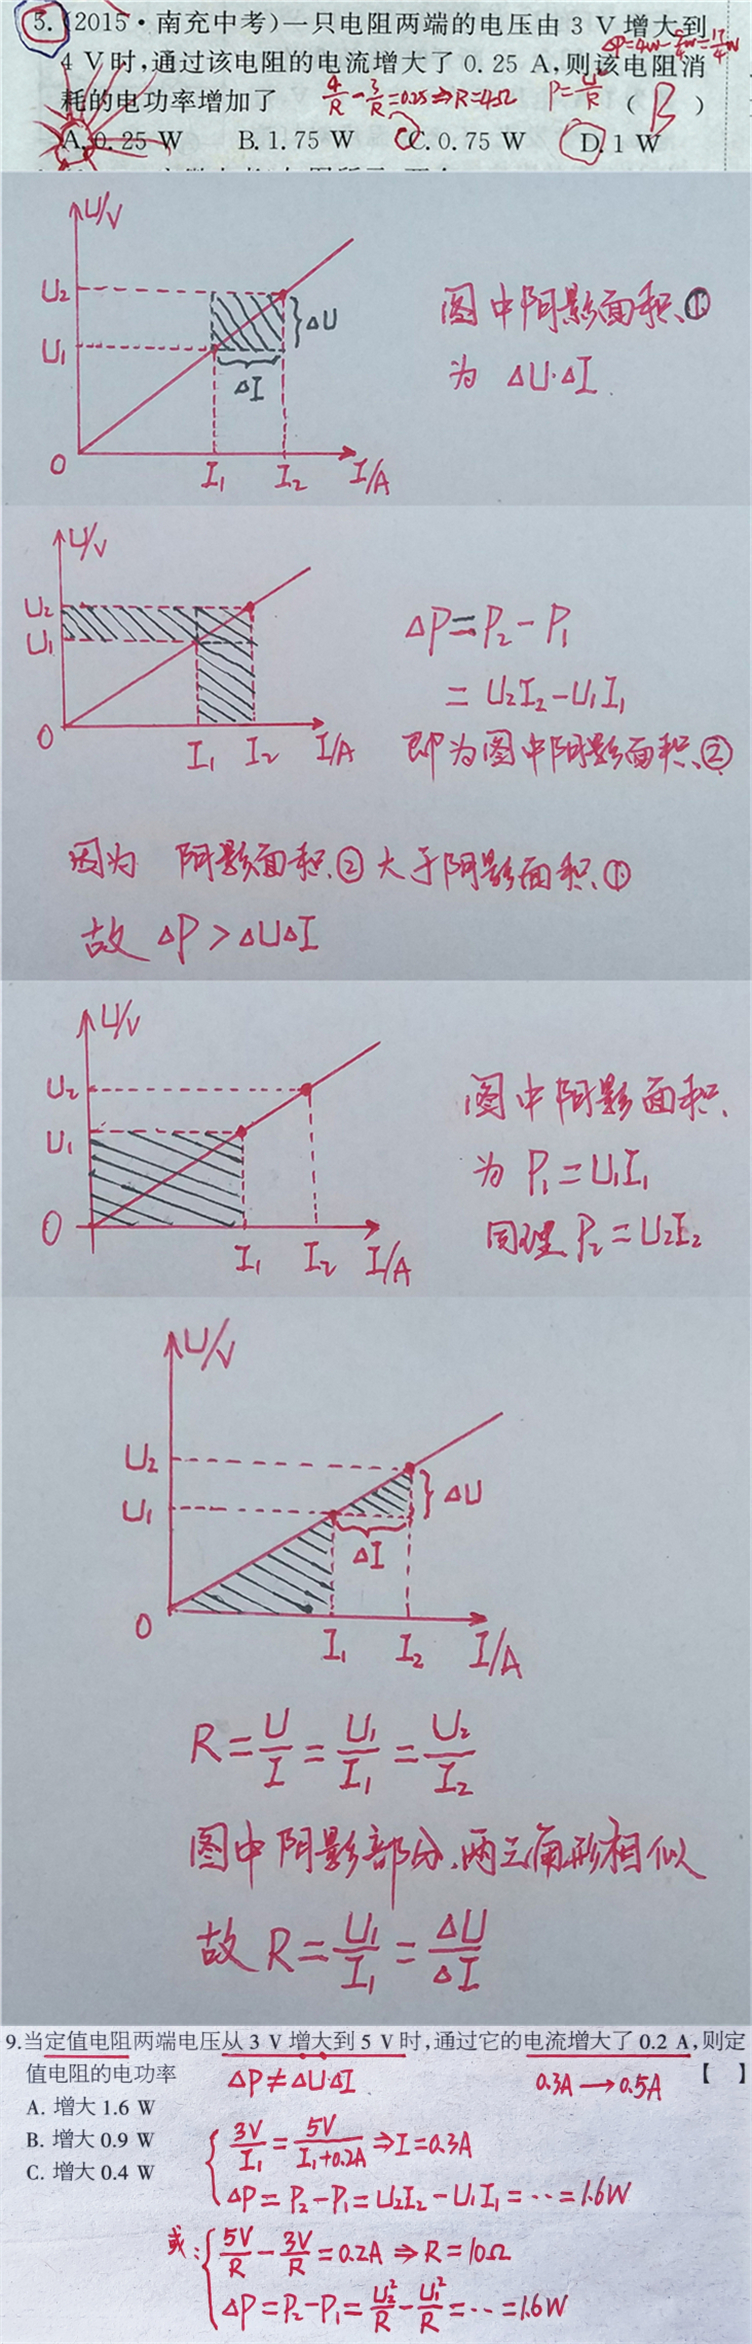 5. (2015·南充中考)一只电阻两端的电压由 3 V 增大到
4 V 时,通过该电阻的电流增大了 0.25 A,则该电阻消
耗的电功率增加了 4/R - 3/R = 0.25 ⇒ R = 4Ω ( B )
A. 0.25 W B. 1.75 W C. 0.75 W D. 1 W
U/V
U₂
U₁
ΔU
ΔI
O I₁ I₂ I/A
图中阴影面积①
为 ΔU·ΔI
U/V
U₂
U₁
O I₁ I₂ I/A
ΔP = P₂ - P₁
= U₂I₂ - U₁I₁
即为图中阴影面积②
因为 阴影面积②大于阴影面积①
故 ΔP > ΔUΔI
U/V
U₂
U₁
O I₁ I₂ I/A
图中阴影面积
为 P₁ = U₁I₁
同理 P₂ = U₂I₂
U/V
U₂
U₁
ΔU
ΔI
O I₁ I₂ I/A
R = U/I = U₁/I₁ = U₂/I₂
图中阴影部分,两三角形相似
故 R = U₁/I₁ = ΔU/ΔI
9.当定值电阻两端电压从 3 V 增大到 5 V 时,通过它的电流增大了 0.2 A,则定
值电阻的电功率 【 】
ΔP ≠ ΔU·ΔI 0.3A → 0.5A
A. 增大 1.6 W
B. 增大 0.9 W
C. 增大 0.4 W
3V/I₁ = 5V/(I₁+0.2A) ⇒ I = 0.3A
ΔP = P₂ - P₁ = U₂I₂ - U₁I₁ = … = 1.6W
或: 5V/R - 3V/R = 0.2A ⇒ R = 10Ω
ΔP = P₂ - P₁ = U₂²/R - U₁²/R = … = 1.6W